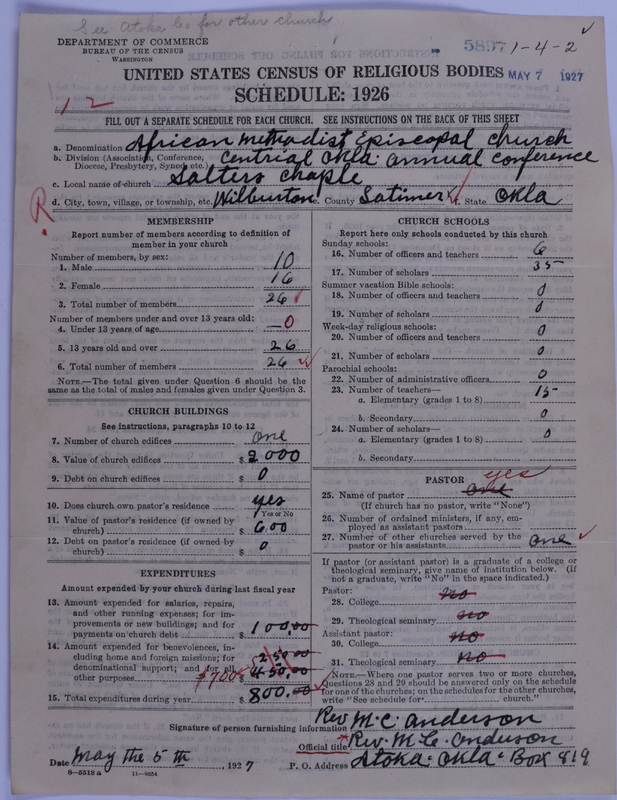 See Atoka Co for other church
DEPARTMENT OF COMMERCE
BUREAU OF THE CENSUS
WASHINGTON
58971-4-2
UNITED STATES CENSUS OF RELIGIOUS BODIES MAY 7 1927
SCHEDULE: 1926
12
FILL OUT A SEPARATE SCHEDULE FOR EACH CHURCH. SEE INSTRUCTIONS ON THE BACK OF THIS SHEET
a. Denomination African Methodist Episcopal church
b. Division (Association, Conference, Diocese, Presbytery, Synod, etc.) Centrial Okla. annual conference
c. Local name of church Salters chaple
d. City, town, village, or township, etc. Wilburton e. County Latimer f. State Okla
R
MEMBERSHIP
Report number of members according to definition of
member in your church
Number of members, by sex:
1. Male 10
2. Female 16
3. Total number of members 26
Number of members under and over 13 years old:
4. Under 13 years of age 0
5. 13 years old and over 26
6. Total number of members 26
NOTE.—The total given under Question 6 should be the
same as the total of males and females given under Question 3.
CHURCH BUILDINGS
See instructions, paragraphs 10 to 12
7. Number of church edifices one
8. Value of church edifices $ 2000
9. Debt on church edifices $ 0
10. Does church own pastor's residence yes
Yes or No
11. Value of pastor's residence (if owned by
church) $ 600
12. Debt on pastor's residence (if owned by
church) $ 0
EXPENDITURES
Amount expended by your church during last fiscal year
13. Amount expended for salaries, repairs,
and other running expenses; for im-
provements or new buildings; and for
payments on church debt $ 100.00
14. Amount expended for benevolences, in-
cluding home and foreign missions; for
denominational support; and for all
other purposes $700 250.00 450.00
15. Total expenditures during year $ 800.00
CHURCH SCHOOLS
Report here only schools conducted by this church
Sunday schools:
16. Number of officers and teachers 6
17. Number of scholars 35
Summer vacation Bible schools:
18. Number of officers and teachers 0
19. Number of scholars 0
Week-day religious schools:
20. Number of officers and teachers 0
21. Number of scholars 0
Parochial schools:
22. Number of administrative officers 0
23. Number of teachers—
a. Elementary (grades 1 to 8) 15
b. Secondary 0
24. Number of scholars—
a. Elementary (grades 1 to 8) 0
b. Secondary
PASTOR yes
25. Name of pastor one
(If church has no pastor, write "None")
26. Number of ordained ministers, if any, em-
ployed as assistant pastors
27. Number of other churches served by the
pastor or his assistants one
If pastor (or assistant pastor) is a graduate of a college or
theological seminary, give name of institution below. (If
not a graduate, write "No" in the space indicated.)
Pastor:
28. College no
29. Theological seminary no
Assistant pastor:
30. College no
31. Theological seminary no
NOTE.—Where one pastor serves two or more churches,
Questions 28 and 29 should be answered only on the schedule
for one of the churches; on the schedules for the other churches,
write "See schedule for church."
Signature of person furnishing information Rev M. C. anderson
Official title Rev. M. C. anderson
Date May the 5th, 1927 P. O. Address Atoka. Okla. Box 819
8—5518 a 11—9034